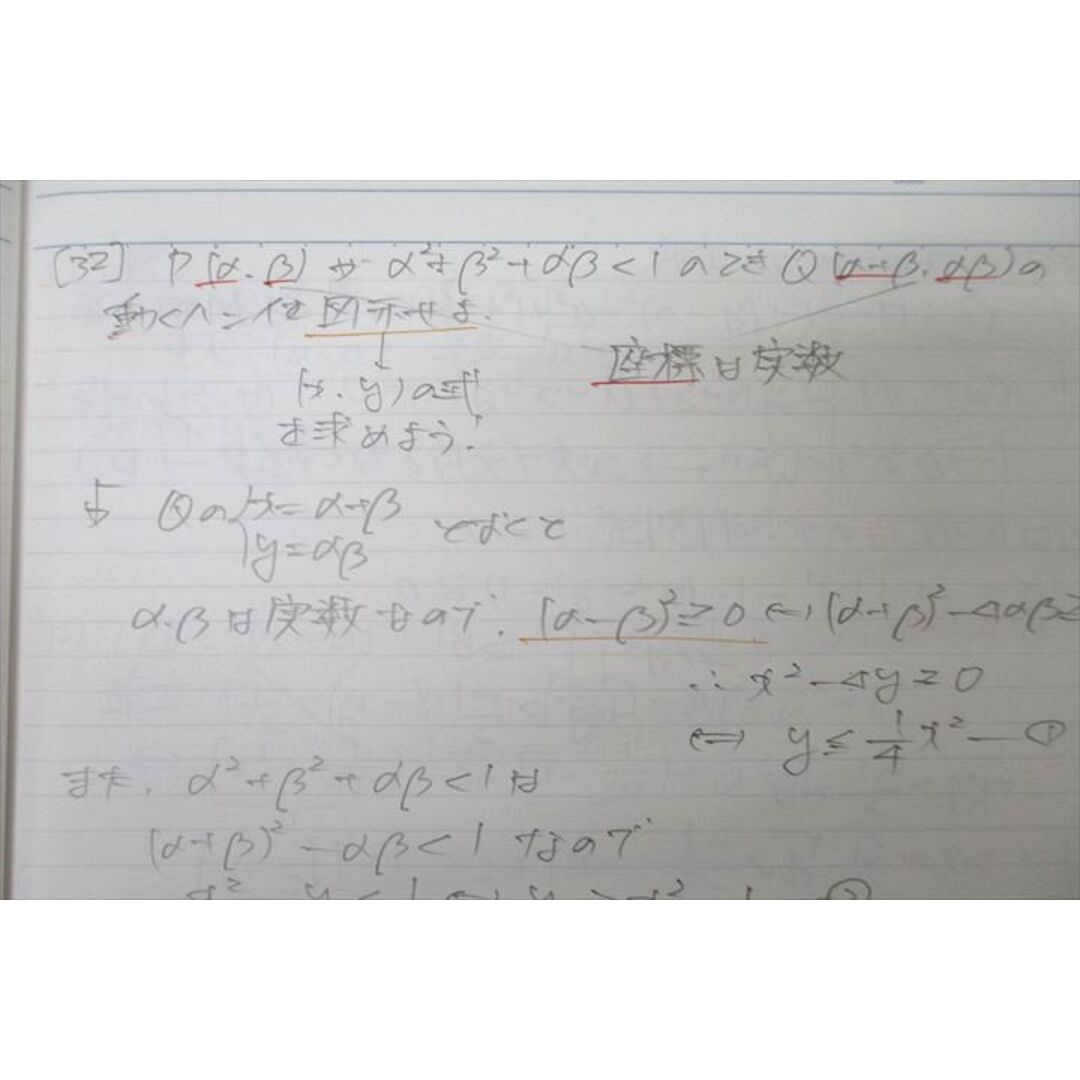 [32] P(α, β)が α²+β²+αβ<1 のとき Q(α+β, αβ)の
動くハンイを図示せよ.
座標は実数
(x, y)の式
を求めよう.
Qの{x=α+β
y=αβ とおくと
α, βは実数なので, (α-β)²≧0 ⇔ (α+β)²-4αβ≧
∴ x²-4y≧0
⇔ y≦1/4x² —①
また, α²+β²+αβ<1は
(α+β)²-αβ<1 なので
x²-y<1 ⇔ y>x²-1 —②